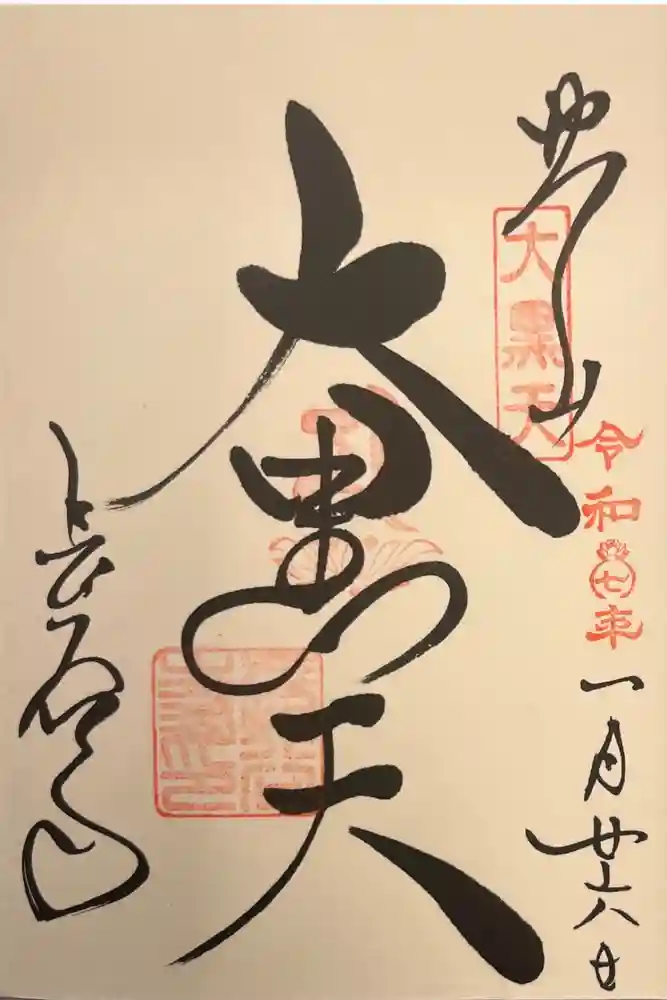 豊山
大黒天
令和七年
一月廿六日
大黒天
長谷寺